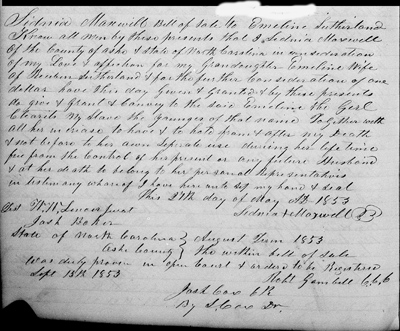 Sidnia Maxwell Bill of Sale to Emeline Sutherland
Know all men by these presents that I Sidnia Maxwell
of the County of Ashe & State of North Carolina in consideration
of my Love & affection for my Grandaughter Emeline Wife
of Reuben Sutherland & for the further Consideration of one
dollar have this day Given & Granted & by these presents
do give & Grant & Convey to the said Emeline the Gerl
Clarrisa My Slave the younger of that name Togither with
all her increase to have & to hold from & after my Death
& not before to her own Seperate use during her life time
free from the Control of his present or any future Husband
& at her death to belong to her personal Representatives
in testimony whereof I have here unto set my hand & seal
This 27th day of May AD. 1853
Test W. H. Sidnia Maxwell
Josh Baker
State of North Carolina } August Term 1853
Ashe County } the within bill of sale
was duly proven in open Court & orderd to be Registered
Sept 18th 1853 Robt Gambill C.C.C
Josh Cox P R
By S. Cox Dr.